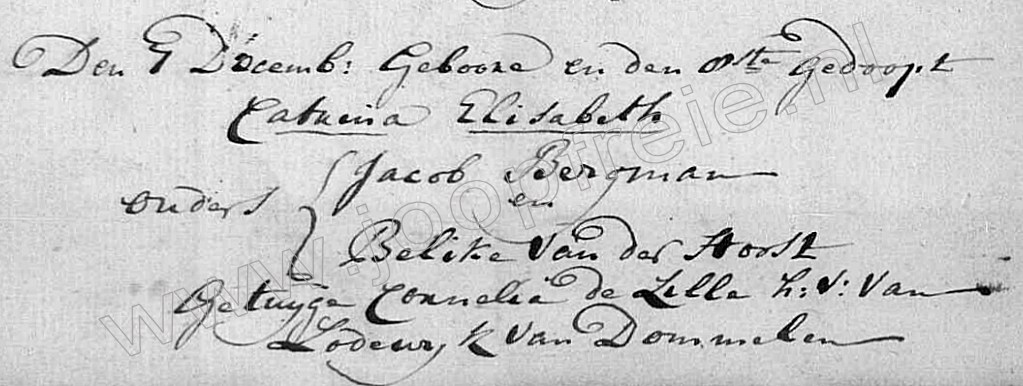 Den 7 Decemb: Geboore en den 8ste Gedoopt
Catrina Elisabeth
Jacob Bergman
ouders en
Belike Van der Horst
Getuyge Cornelia de Lille h: v: Van
Lodewyk van Dommelen
www.joopfreie.nl